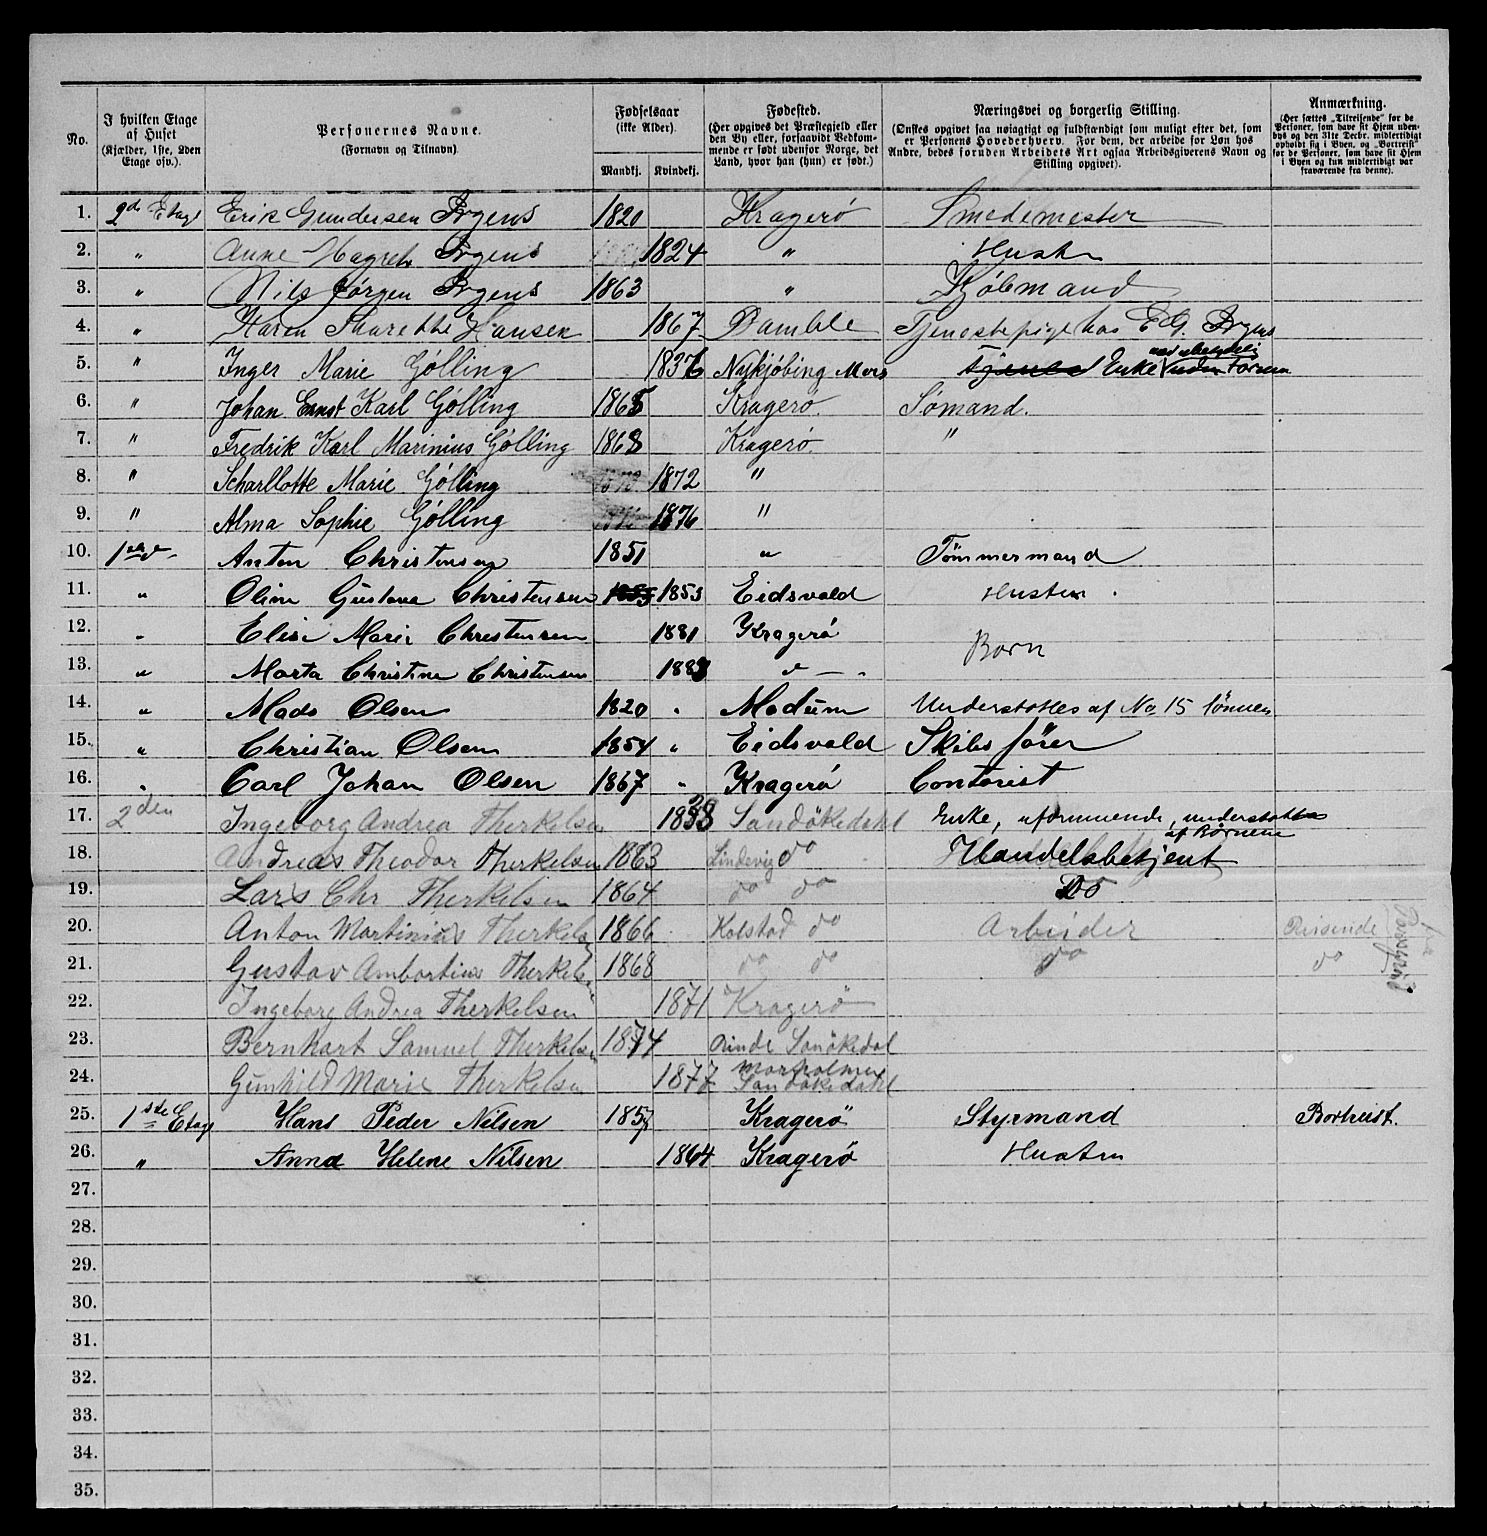 No.
I hvilken Etage af Huset (Kjælder, 1ste, 2den Etage osv.).
Personernes Navne. (Fornavn og Tilnavn)
Fødselsaar (ikke Alder).
Mandkj. Kvindekj.
Fødested. (Her opgives det Præstegjeld eller den By eller, forsaavidt Vedkommende er født udenfor Norge, det Land, hvor han (hun) er født.)
Næringsvei og borgerlig Stilling. (Ønskes opgivet saa nøiagtigt og fuldstændigt som muligt efter det, som er Personens Hovederhverv. For dem, der arbeide for Løn hos Andre, bedes foruden Arbeidets Art ogsaa Arbeidsgiverens Navn og Stilling opgivet).
Anmærkning. (Her sættes „Tilreisende" for de Personer, som have sit Hjem udenbys og den 31te Decbr. midlertidigt opholdt sig i Byen, og „Bortreist" for de Personer, som have sit Hjem i Byen og kun midlertidigt var fraværende fra denne).
1. 2de Etage Erik Gundersen Irgens 1820 Kragerö Smedemester
2. " Anne Magreth Irgens 1824 " Hustru
3. " Nils Jørgen Irgens 1863 " Kjøbmand
4. " Karen Thurette Hansen 1867 Bamble Tjenestepige hos E G. Irgens
5. " Inger Marie Gölling 1837 Nykjöbing Mors Enke
6. " Johan Ernst Karl Gölling 1865 Kragerö. Sömand.
7. " Fredrik Karl Marinius Gölling 1868 Kragerö. "
8. " Scharllotte Marie Gölling 1872 "
9. " Alma Sophie Gölling 1876 "
10. Anton Christensen 1851 " Tömmermand
11. " Oline Gustava Christensen 1853 1853 Eidsvold Hustru
12. " Elise Marie Christensen 1881 Kragerö Born
13. " Marta Christine Christensen 1883 "
14. " Mads Olsen 1820 " Modum Understøttes af No 15 Sönnen
15. " Christian Olsen 1854 " Eidsvold Skibsförer
16. " Carl Johan Olsen 1867 " Kragerö Contorist
17. 2den Ingeborg Andrea Therkelsen 1838 Sandökedahl Enke, uformuende, understøttes af Børnene
18. Andreas Theodor Therkelsen 1863 Lindevig do Handelsbetjent
19. Lars Chr Therkelsen 1864 do do Do
20. Anton Martinius Therkelsen 1866 Kolstad do Arbeider
21. Gustav Ambortius Therkelsen 1868 do do do do
22. Ingeborg Andrea Therkelsen 1871 Kragerö
23. Bernhart Samuel Therkelsen 1874 Rinde Sanökedal
24. Gunhild Marie Therkelsen 1877 Sandökedahl
25. 1ste Etage Hans Peder Nilsen 1857 Kragerö Styrmand Bortreist.
26. " Anna Helene Nilsen 1864 Kragerö Hustru
27.
28.
29.
30.
31.
32.
33.
34.
35.